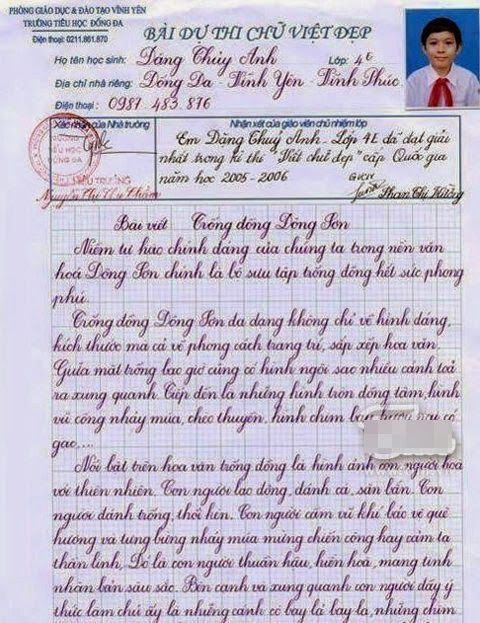 PHÒNG GIÁO DỤC & ĐÀO TẠO VĨNH YÊN
TRƯỜNG TIỂU HỌC ĐỐNG ĐA
Điện thoại: 0211.861.870
BÀI DỰ THI CHỮ VIỆT ĐẸP
Họ tên học sinh: Đặng Thủy Anh Lớp: 4E
Địa chỉ nhà riêng: Đống Đa - Vĩnh Yên - Vĩnh Phúc.
Điện thoại: 0987 483 876
Xác nhận của Nhà trường
HIỆU TRƯỞNG
Nhận xét của giáo viên chủ nhiệm lớp
Em Đặng Thuỷ Anh - Lớp 4E đã đạt giải
nhất trong kì thi "Viết chữ đẹp" cấp Quốc gia
năm học 2005 - 2006
GVCN
Phan Thị Hường
Bài viết Trống đồng Đông Sơn
Niềm tự hào chính đáng của chúng ta trong nền văn
hoá Đông Sơn chính là bộ sưu tập trống đồng hết sức phong
phú.
Trống đồng Đông Sơn đa dạng không chỉ về hình dáng,
kích thước mà cả về phong cách trang trí, sắp xếp hoa văn.
Giữa mặt trống bao giờ cũng có hình ngôi sao nhiều cánh toả
ra xung quanh. Tiếp đến là những hình tròn đồng tâm, hình
vũ công nhảy múa, chèo thuyền, hình chim bay, hươu nai có
gạc,...
Nổi bật trên hoa văn trống đồng là hình ảnh con người hoà
với thiên nhiên. Con người lao động, đánh cá, săn bắn. Con
người đánh trống, thổi kèn. Con người cầm vũ khí bảo vệ quê
hương và tưng bừng nhảy múa mừng chiến công hay cảm tạ
thần linh, Đó là con người thuần hậu, hiền hoà, mang tính
nhân bản sâu sắc. Bên cạnh và xung quanh con người đầy ý
thức làm chủ ấy là những cánh cò bay lả bay la, những chim